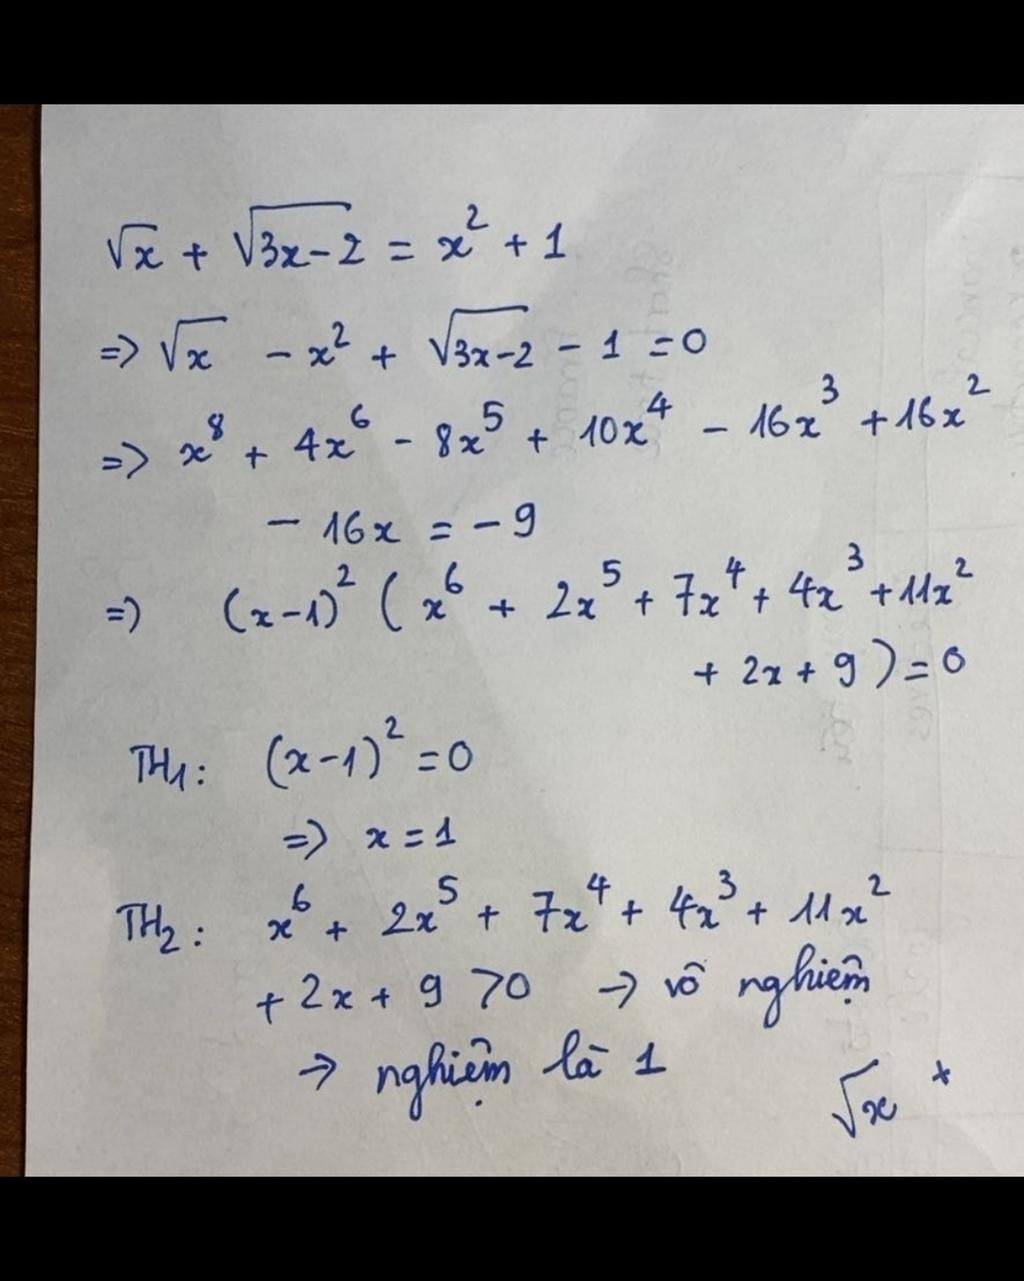 √x + √3x-2 = x² + 1
=> √x - x² + √3x-2 - 1 = 0
=> x⁸ + 4x⁶ - 8x⁵ + 10x⁴ - 16x³ + 16x²
- 16x = -9
=> (x-1)² ( x⁶ + 2x⁵ + 7x⁴ + 4x³ + 11x²
+ 2x + 9 ) = 0
TH1: (x-1)² = 0
=> x = 1
TH2: x⁶ + 2x⁵ + 7x⁴ + 4x³ + 11x²
+ 2x + 9 > 0 → vô nghiệm
→ nghiệm là 1
√x *